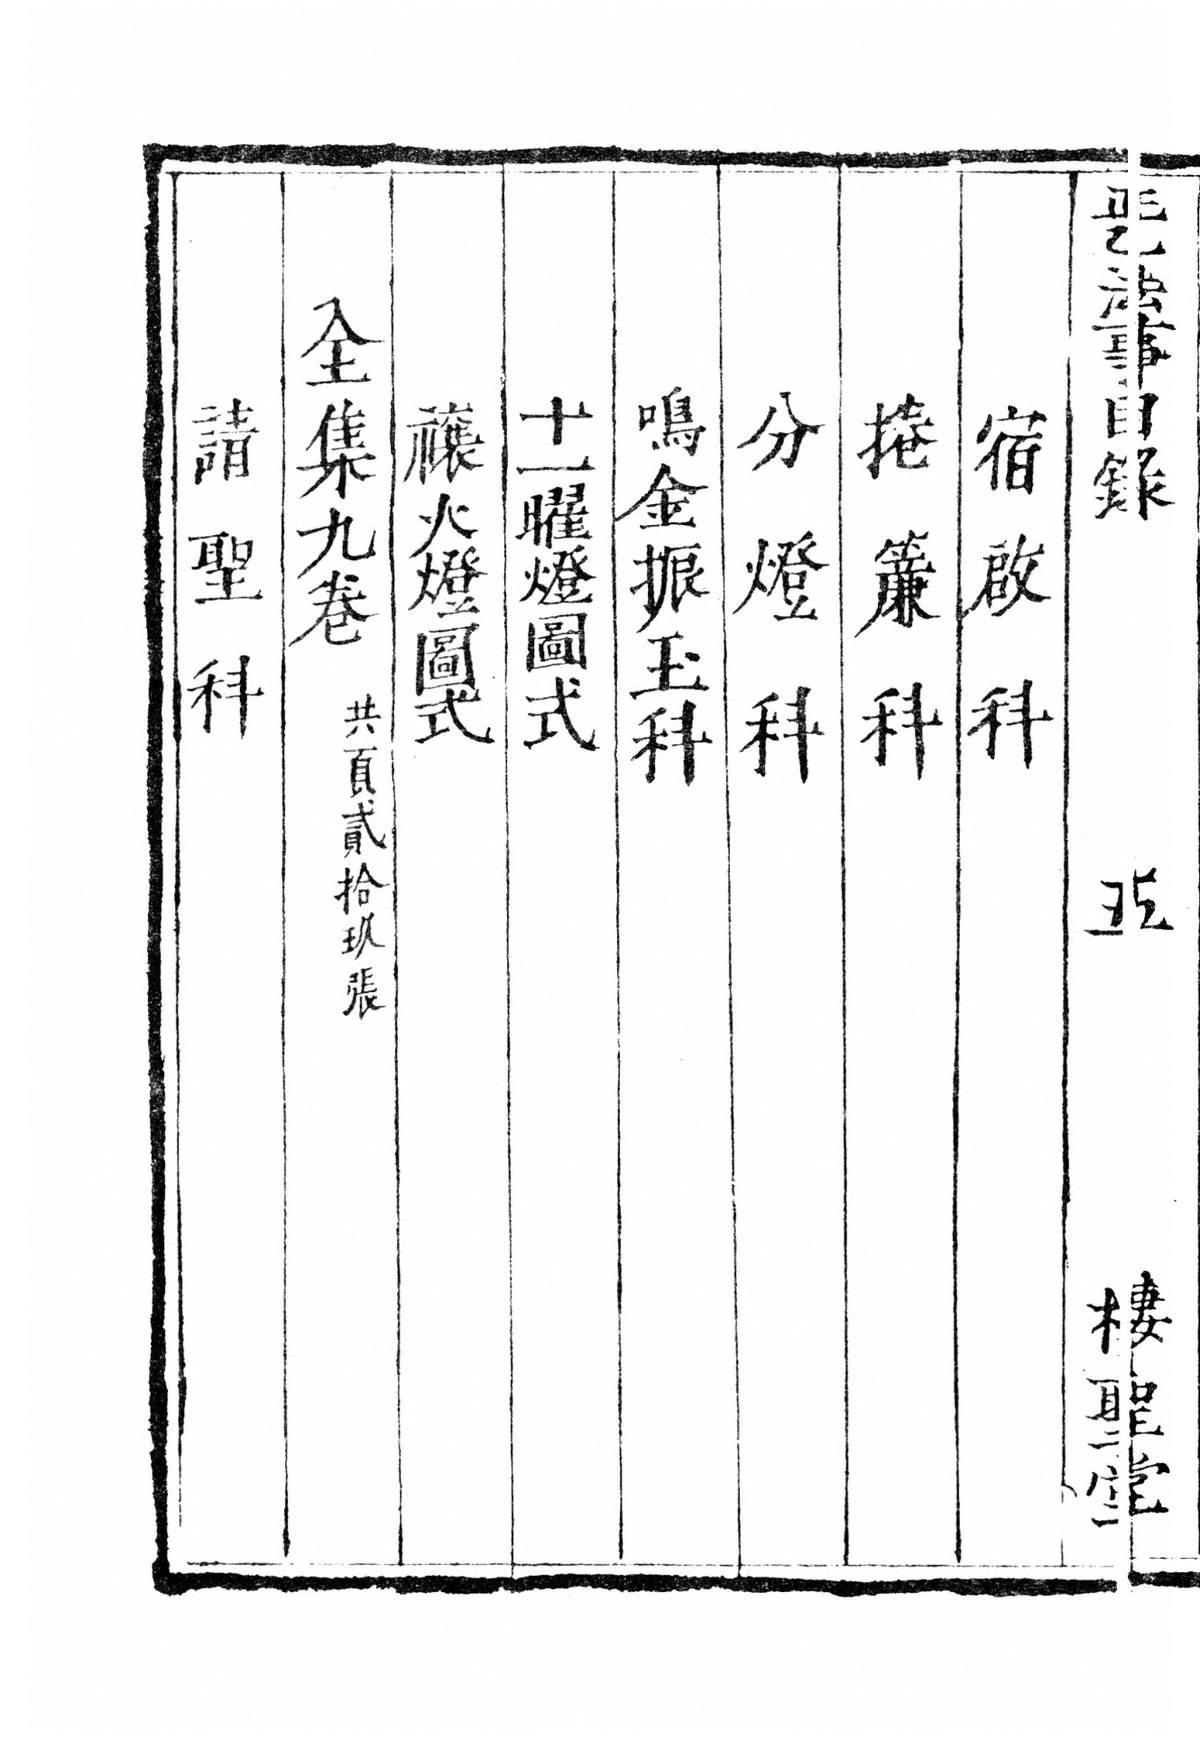 法事目錄
棲聖堂
宿啟科
捲簾科
分燈科
鳴金振玉科
十一曜燈圖式
禳火燈圖式
全集九卷 共頁貳拾玖張
請聖科